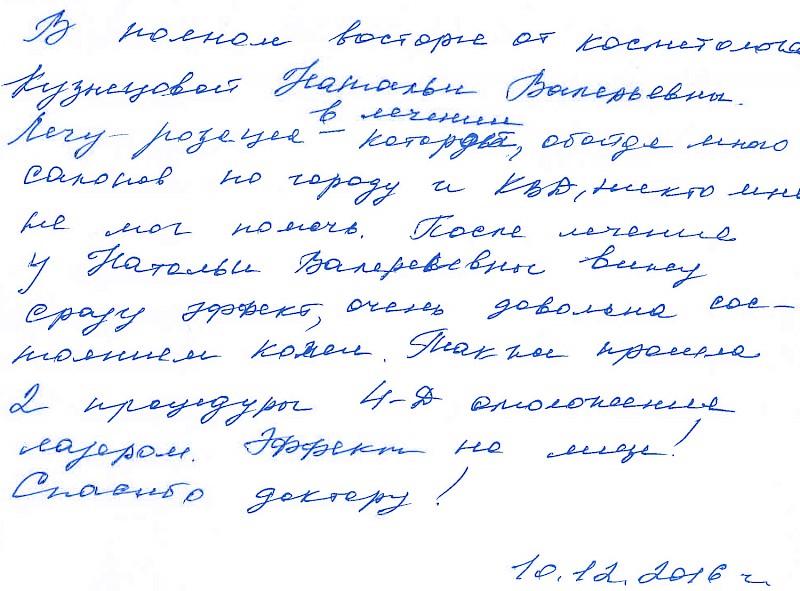 В полном восторге от косметолога
Кузнецовой Натальи Валерьевны.
в лечении
Лечу – розацеа – которой, обойдя много
салонов по городу и КВД, никто мне
не мог помочь. После лечения
у Натальи Валерьевны вижу
сразу эффект, очень довольна сос-
тоянием кожи. Также прошла
2 процедуры 4-D омоложения
лазером. Эффект на лице!
Спасибо доктору!
10.12.2016 г.